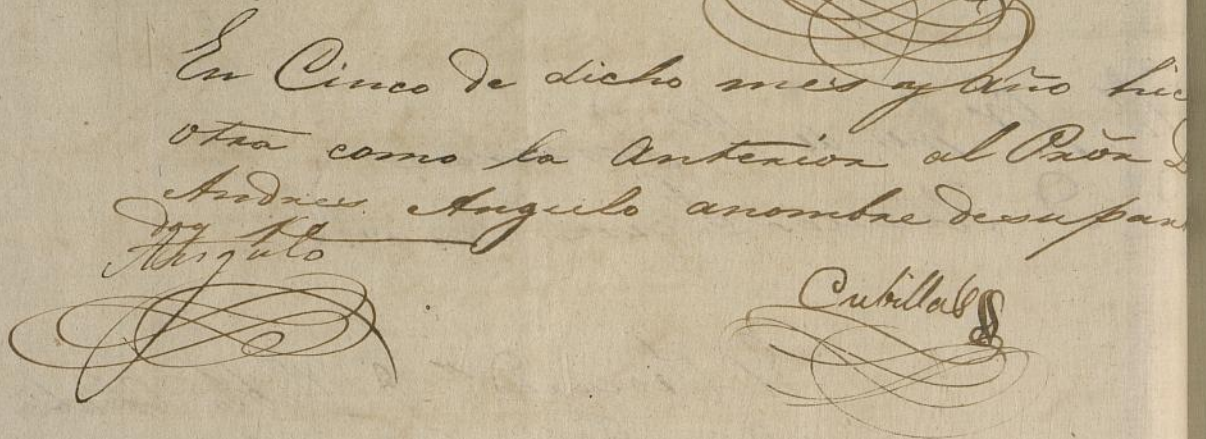 En Cinco de dicho mes y Año hic
otra como la Anterior al Prõr D
Andres Angulo anombre desupar
doy fé
Angulo
Cubillas